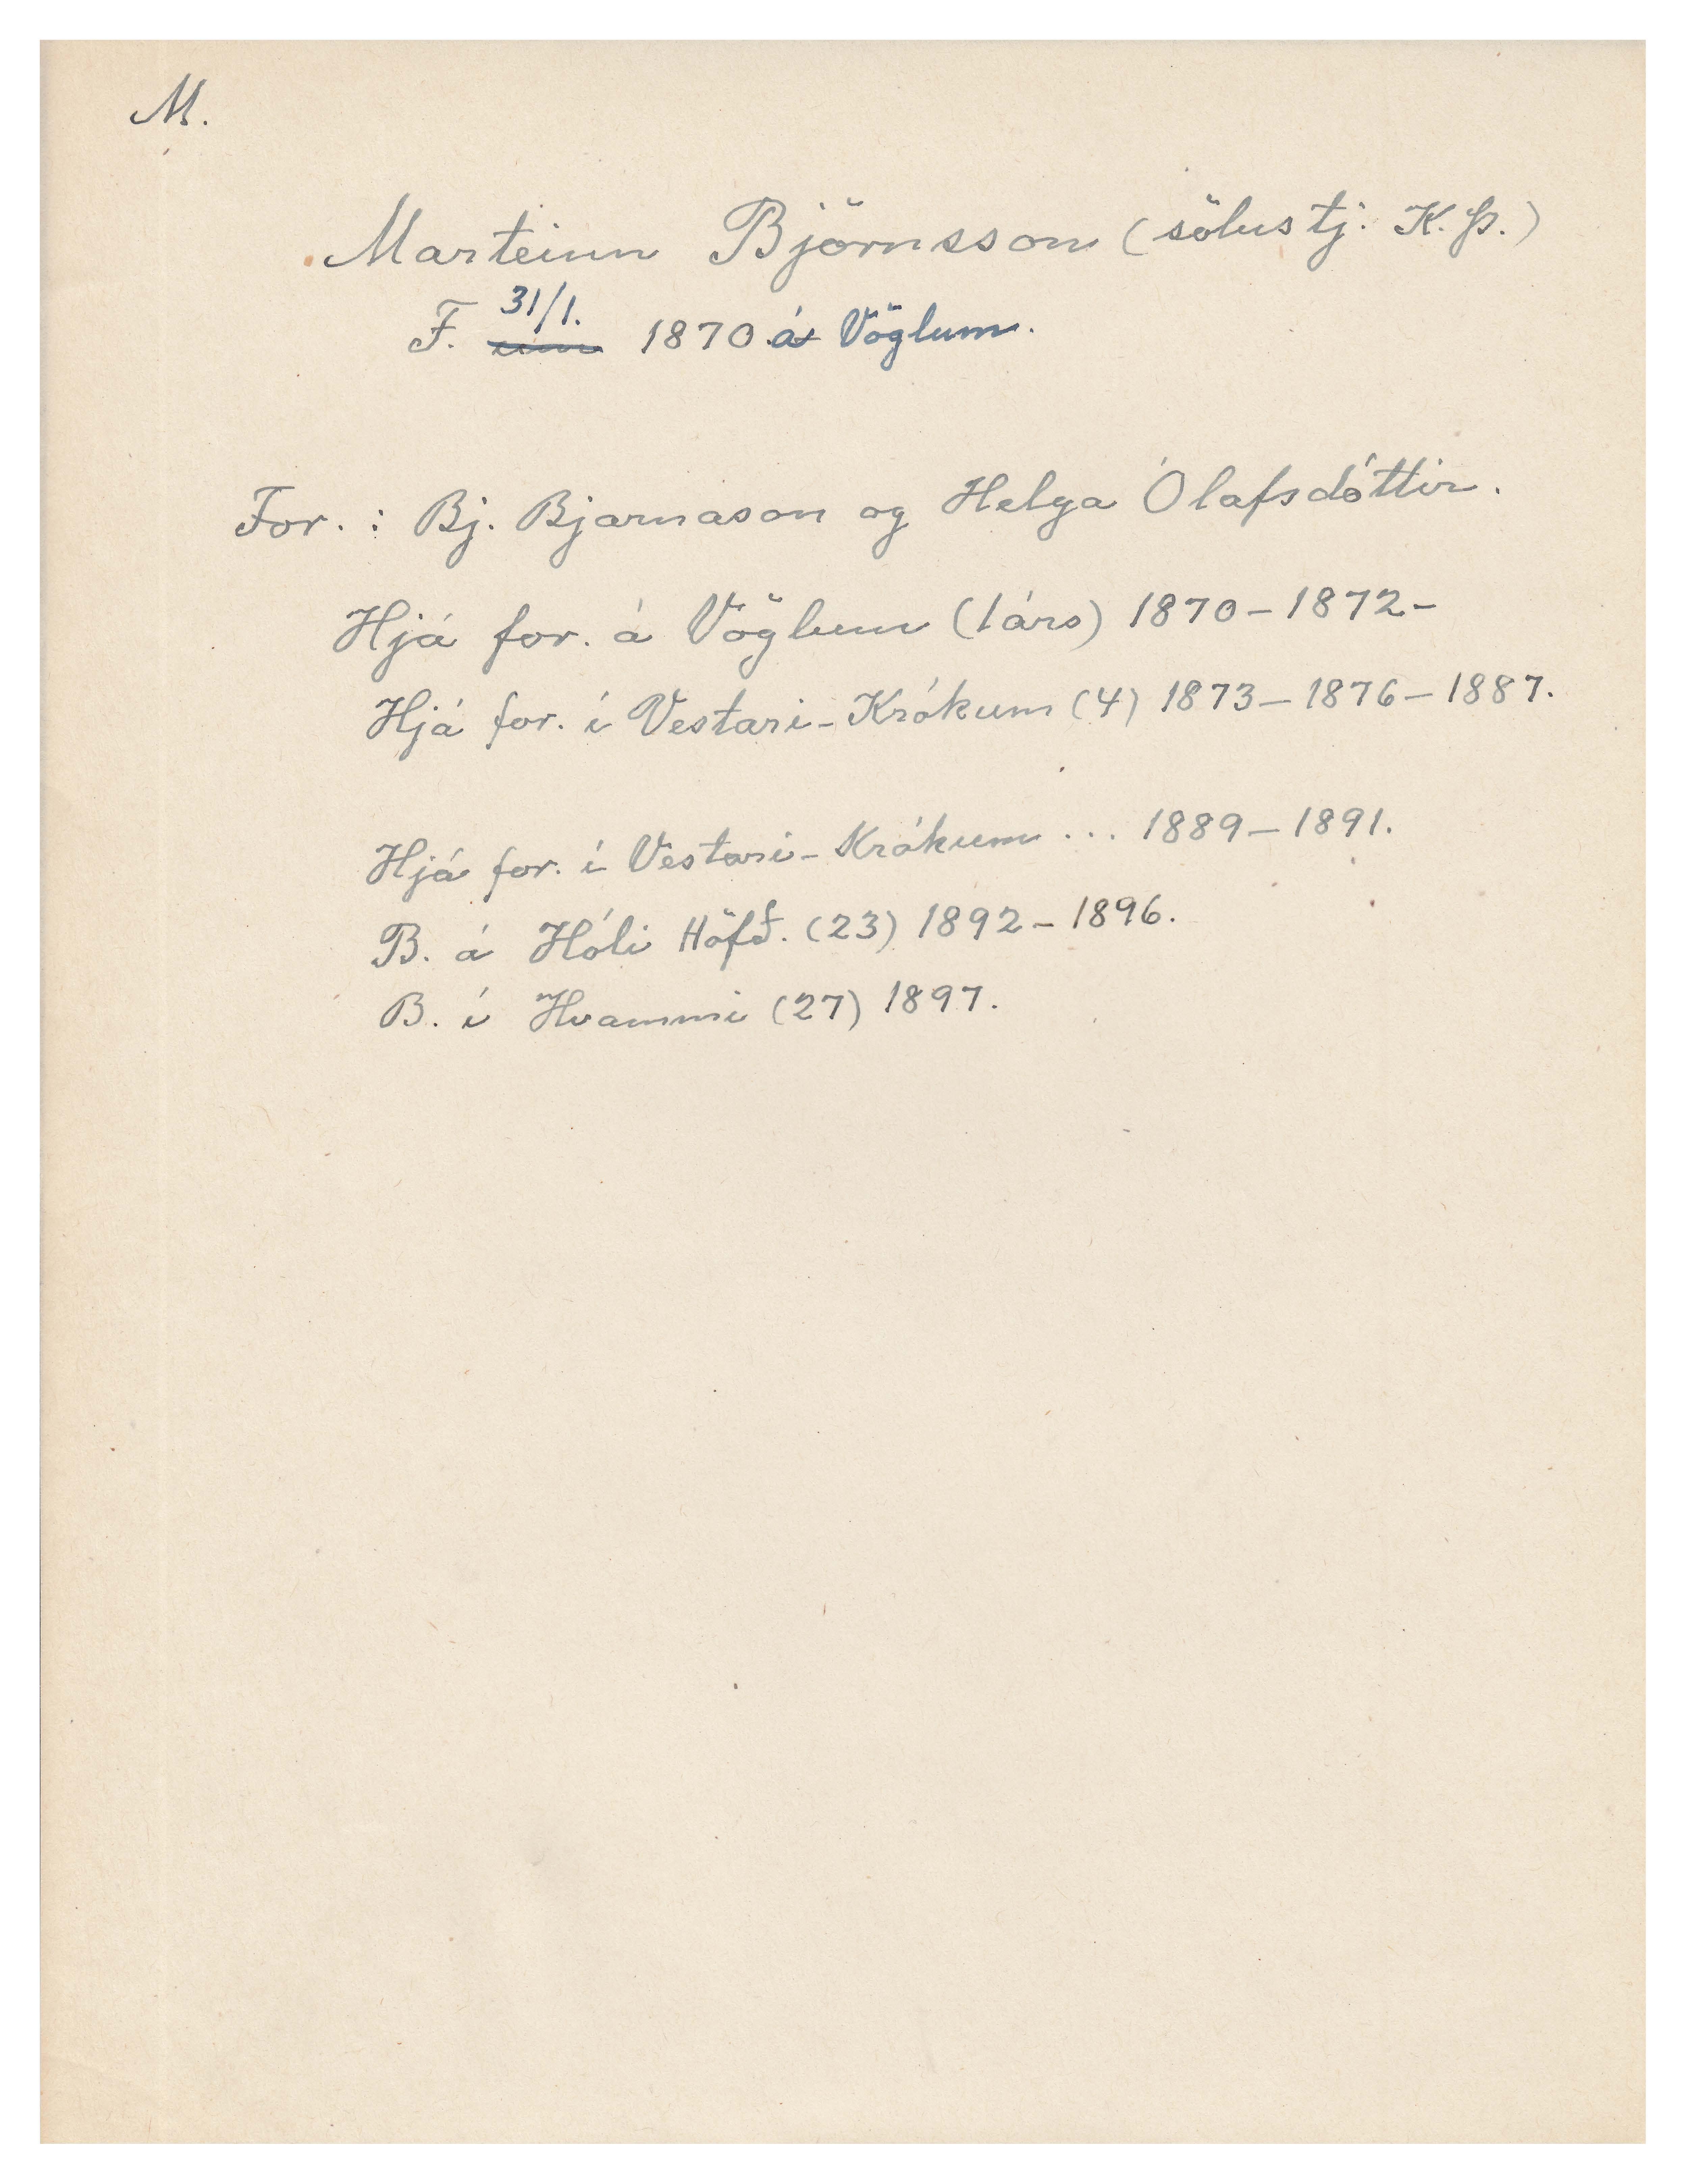 M.
Marteinn Björnsson (sölustj. K. Þ.)
F. 31/1. um 1870 á Vöglum.
For. : Bj. Bjarnason og Helga Ólafsdóttir.
Hjá for. á Vöglum (1 árs) 1870 – 1872 –
Hjá for. í Vestari-Krókum (4) 1873 – 1876 – 1887.
Hjá for. í Vestari-Krókum ... 1889 – 1891.
B. á Hóli Höfð. (23) 1892 – 1896.
B. í Hvammi (27) 1897.